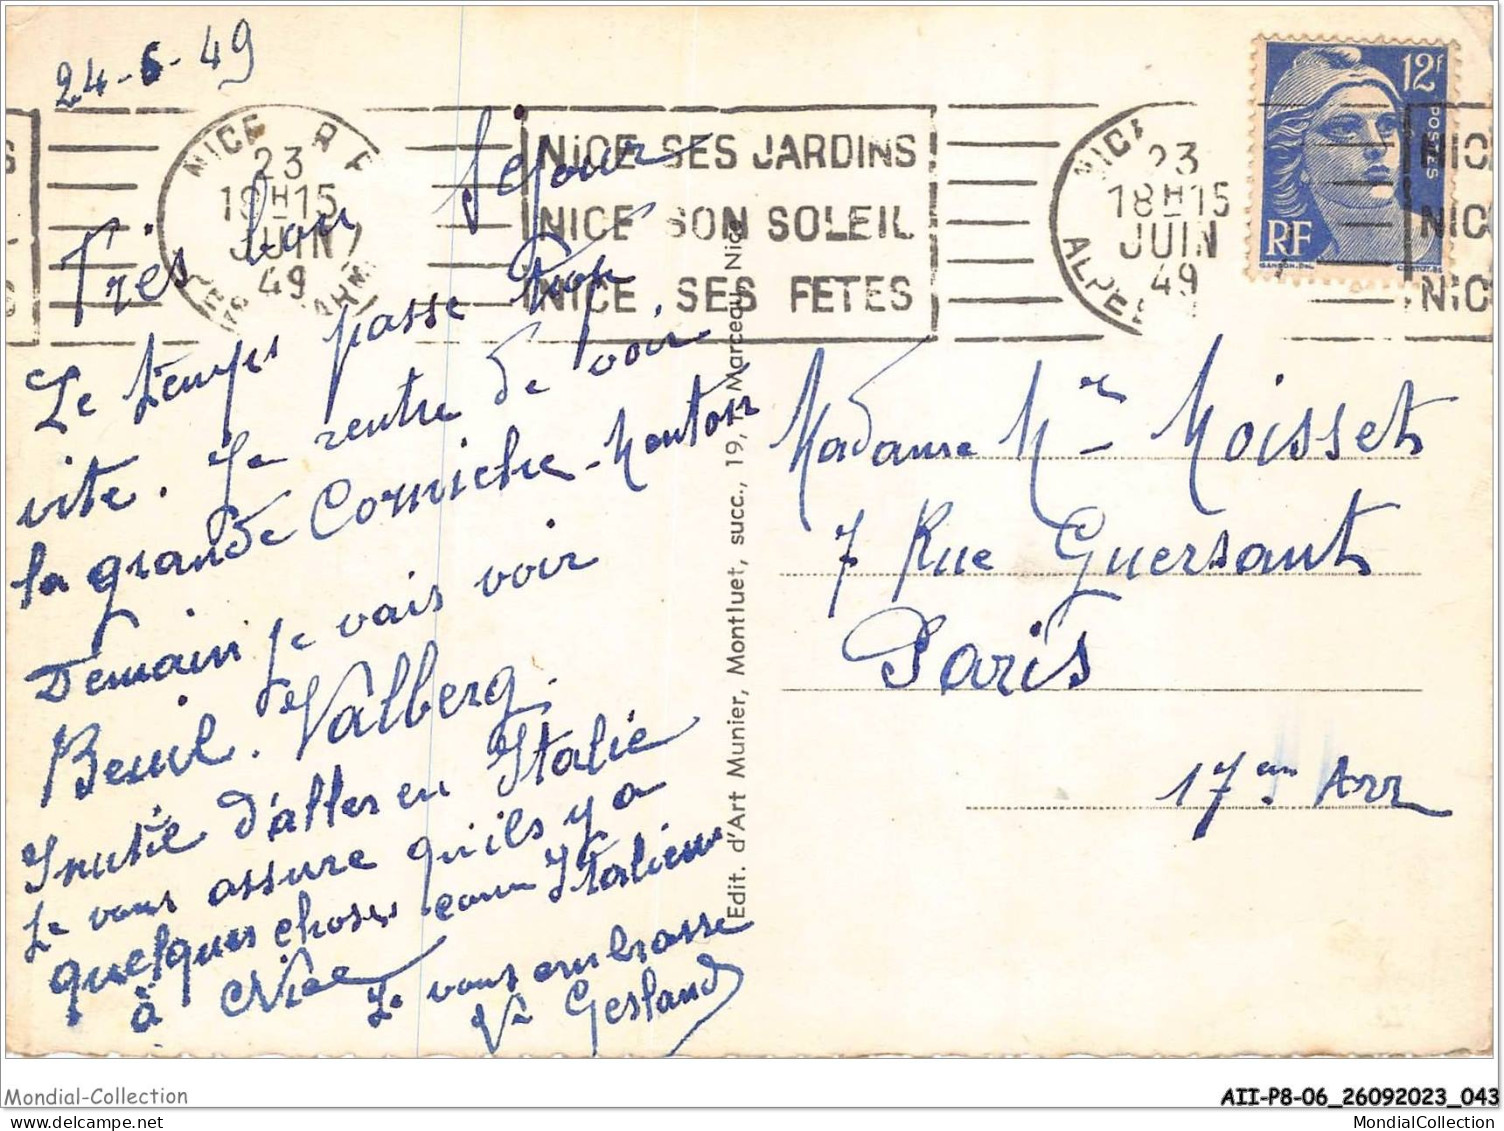 24-6-49
NICE R.P.
23
18H15
JUIN
49
NICE SES JARDINS
NICE SON SOLEIL
NICE SES FETES
NICE
23
18H15
JUIN
49
ALPES
12F
POSTES
RF
Très bon séjour
Le temps passe trop
vite. Je rentre de voir
la grande Corniche-Menton
Demain je vais voir
Beuil. Valberg.
Inutile d'aller en Italie
Je vous assure qu'ils y a
quelques choses comme Italiens
à Nice
Je vous embrasse
Vve Gesland
Edit. d'Art Munier, Montluet, succ., 19, r. Marceau, Nice
Madame Vve Moisset
7 Rue Guersant
Paris
17em Arr
Mondial-Collection
AII-P8-06_26092023_043
MondialCollection